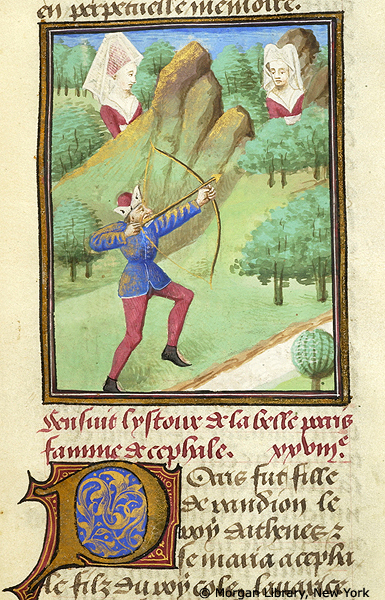 en perpetuelle memoire.
Sensuit lystoire de la belle pocris
famme de cephale. xxviii.e
Pocris fut fille
de pandion le
roy dathenes &
se maria a cepha
le filz du roy eole.
© Morgan Library, New York